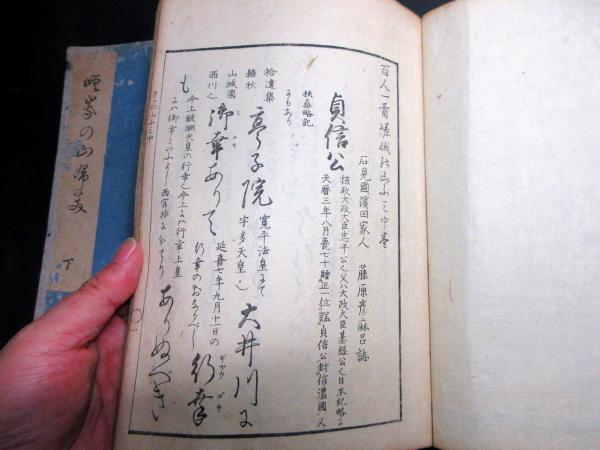 百人一首嵯峨の山ふみ中巻
石見國濱田家人 藤原彦麻呂誌
貞信公
摂政大政大臣忠平公也父ハ大政大臣基經公也日本紀略に
天暦三年八月薨七十贈正一位謚貞信公封信濃國人
扶桑略記
にもあり
拾遺集
雜秋
亭子院
寛平法皇にて
宇多天皇也
大井川に
山城國
西川也
御幸ありて
延喜七年九月十一日の
行幸のおなじ
行幸
ギヤウ ゴウ
も
今上醍醐天皇の行幸也今上にハ行幸上皇
にハ御幸といふよし西宮抄に
ありぬべき
嵯峨の山ふみ
下